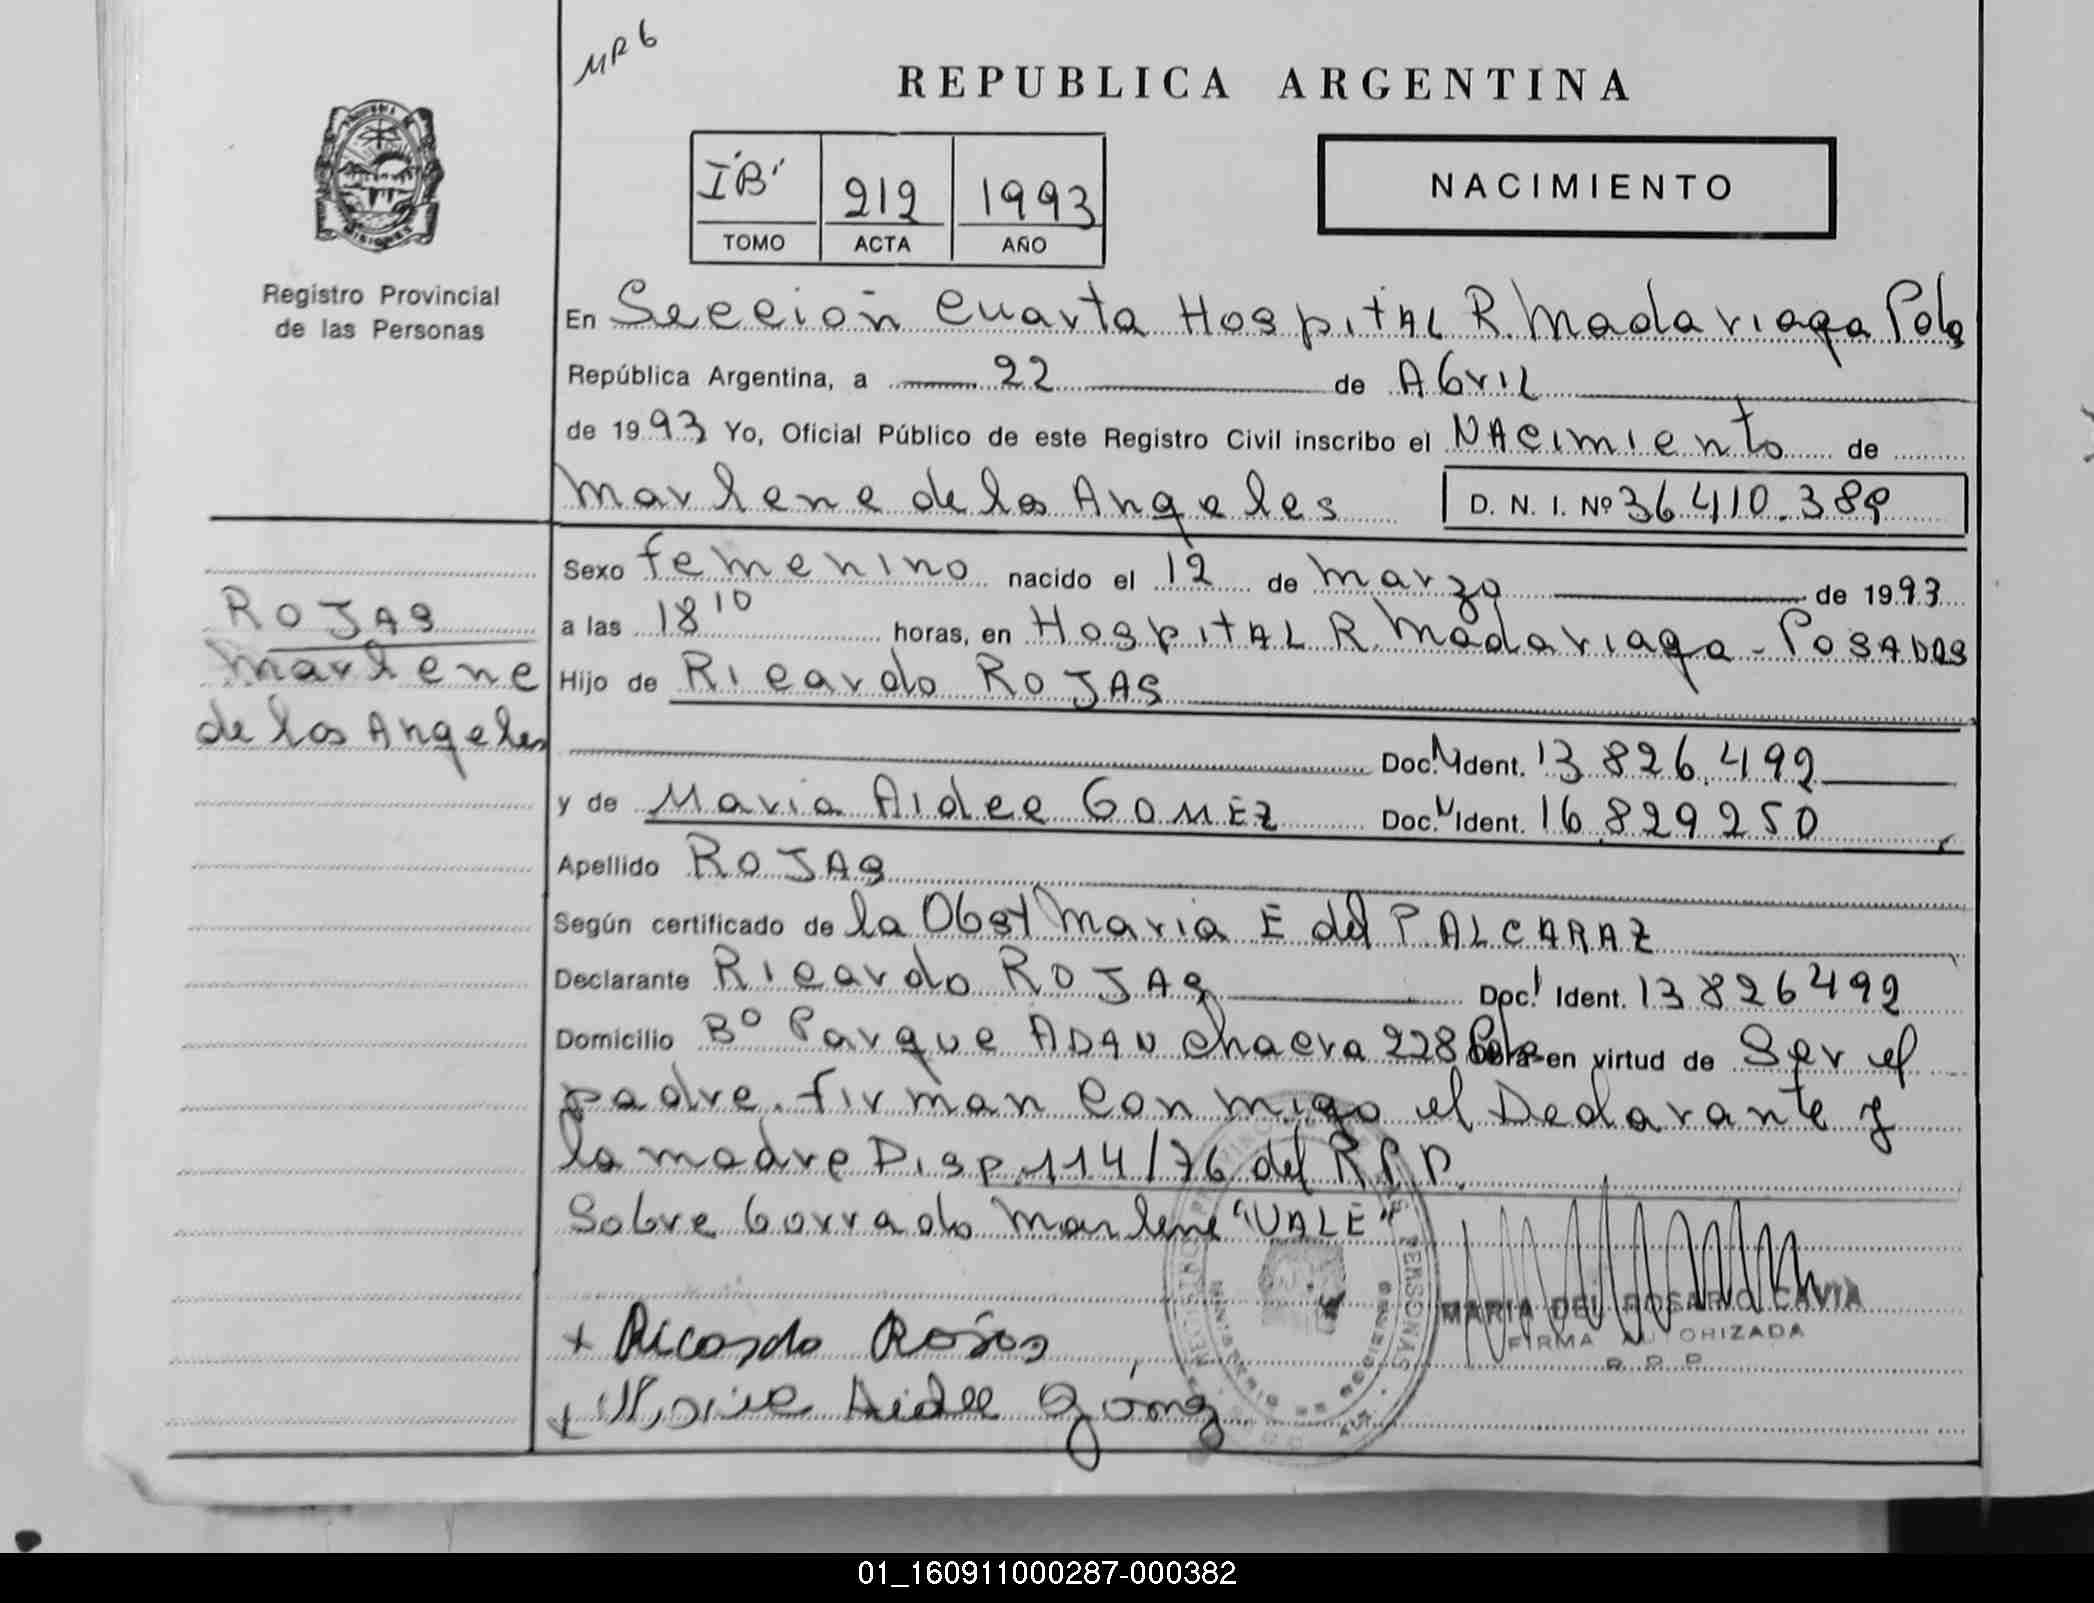 MR6
REPUBLICA ARGENTINA
I "B" 212 1993
TOMO ACTA AÑO
NACIMIENTO
Registro Provincial
de las Personas
En Sección Cuarta Hospital R. Madariaga Pdas
República Argentina, a 22 de Abril
de 1993 Yo, Oficial Público de este Registro Civil inscribo el Nacimiento de
Marlene de los Angeles D. N. I. Nº 36.410.389
ROJAS
Marlene
de los Angeles
Sexo femenino nacido el 12 de Marzo de 1993
a las 18 10 horas, en Hospital R. Madariaga - Posadas
Hijo de Ricardo ROJAS
Doc. Ident. 13.826.492
y de Maria Aidee GOMEZ Doc. Ident. 16.829250
Apellido ROJAS
Según certificado de la Obst Maria E del P. ALCARAZ
Declarante Ricardo ROJAS Doc. Ident. 13826492
Domicilio Bº Parque ADAN Chacra 228 Obra en virtud de Ser el
padre. firman Conmigo el Declarante y
la madre Disp. 114/76 del R.P.P.
Sobre borrado Marlene "VALE"
MARIA DEL ROSARIO CAVIA
FIRMA AUTORIZADA
R.P.P.
+ Ricardo Rojas
+ Maria Aidee Gómez
01_160911000287-000382